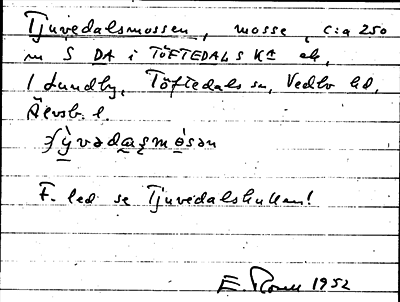 Tjuvedalsmossen, mosse, c:a 250
m S DA i TÖFTEDALS KA ek,
1 Lundby, Töftedals sn, Vedbo hd,
Älvsb. l.
F. led se Tjuvedalskullen!
1952